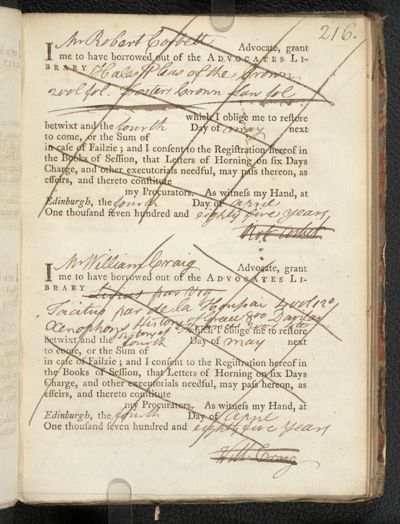 216.
I Mr Robert Corbett Advocate, grant
me to have borrowed out of the ADVOCATES LI-
BRARY Hales Pleas of the Crown
2 vol fol. Crown Law fol.
which I oblige me to restore
betwixt and the fourth Day of may next
to come, or the Sum of
in case of Failzie; and I consent to the Registration hereof in
the Books of Session, that Letters of Horning on six Days
Charge, and other executorials needful, may pass thereon, as
effeirs, and thereto constitute
my Procurators. As witness my Hand, at
Edinburgh, the fourth Day of April
One thousand seven hundred and eighty five years
Robt Corbett
I Mr William Craig Advocate, grant
me to have borrowed out of the ADVOCATES LI-
BRARY
Tacitus par de la 4 vol 12o
Xenophons History of Greece 8vo
which I oblige me to restore
betwixt and the fourth Day of may next
to come, or the Sum of
in case of Failzie; and I consent to the Registration hereof in
the Books of Session, that Letters of Horning on six Days
Charge, and other executorials needful, may pass hereon, as
effeirs, and thereto constitute
my Procurators. As witness my Hand, at
Edinburgh, the fourth Day of April
One thousand seven hundred and eighty five years
Will Craig